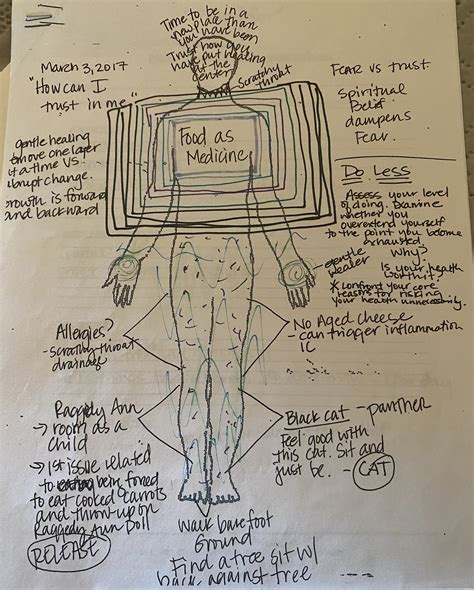 Time to be in a
new place than
you have been
Trust how you
have put healing
at the
center
Scratchy
throat
March 3, 2017
"How can I
trust in me"
gentle healing
to move one layer
at a time vs.
abrupt change.
Growth is forward
and backward
Food as
Medicine
Fear vs Trust
Spiritual
Belief
dampens
Fear.
Do Less
Assess your level
of doing. Examine
whether you
overextend yourself
to the point you become
exhausted
Why?
Is your health
worth it?
* Confront your core
reasons for risking
your health unnecessarily.
gentle
healer
Allergies?
- scratchy throat
drainage
No Aged Cheese
- can trigger inflammation
IC
Raggedy Ann
→ room as a
child
→ 1st issue related
to being forced
to eat cooked carrots
and throw-up on
Raggedy Ann Doll
RELEASE
Black cat - panther
Feel good with
this cat. Sit and
just be. - CAT
Walk barefoot
Ground
Find a tree sit w/
back against tree